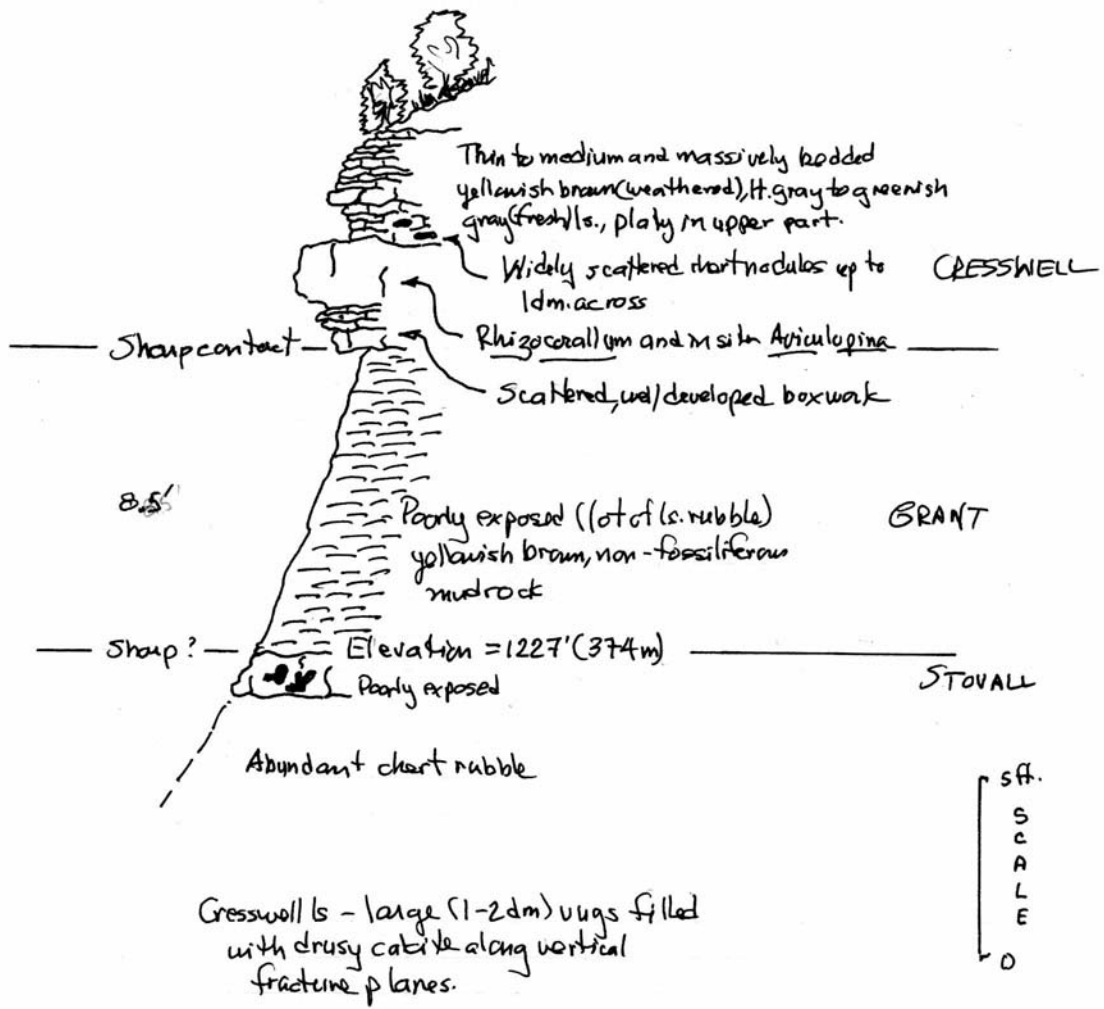 Thin to medium and massively bedded
yellowish brown (weathered), lt. gray to greenish
gray (fresh) ls., platy in upper part.
Widely scattered chert nodules up to
1dm. across
CRESSWELL
Sharp contact
Rhizocorallum and in situ Aviculopina
Scattered, well developed boxwork
8.5'
Poorly exposed (lot of ls. rubble)
yellowish brown, non-fossiliferous
mudrock
GRANT
Sharp?
Elevation = 1227' (374m)
Poorly exposed
STOVALL
Abundant chert rubble
5ft.
SCALE
0
Cresswell ls - large (1-2dm) vugs filled
with drusy calcite along vertical
fracture planes.